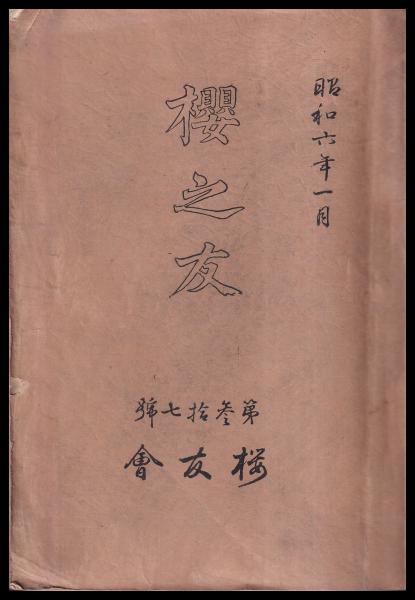 昭和六年一月
櫻之友
第叄拾七號
桜友會